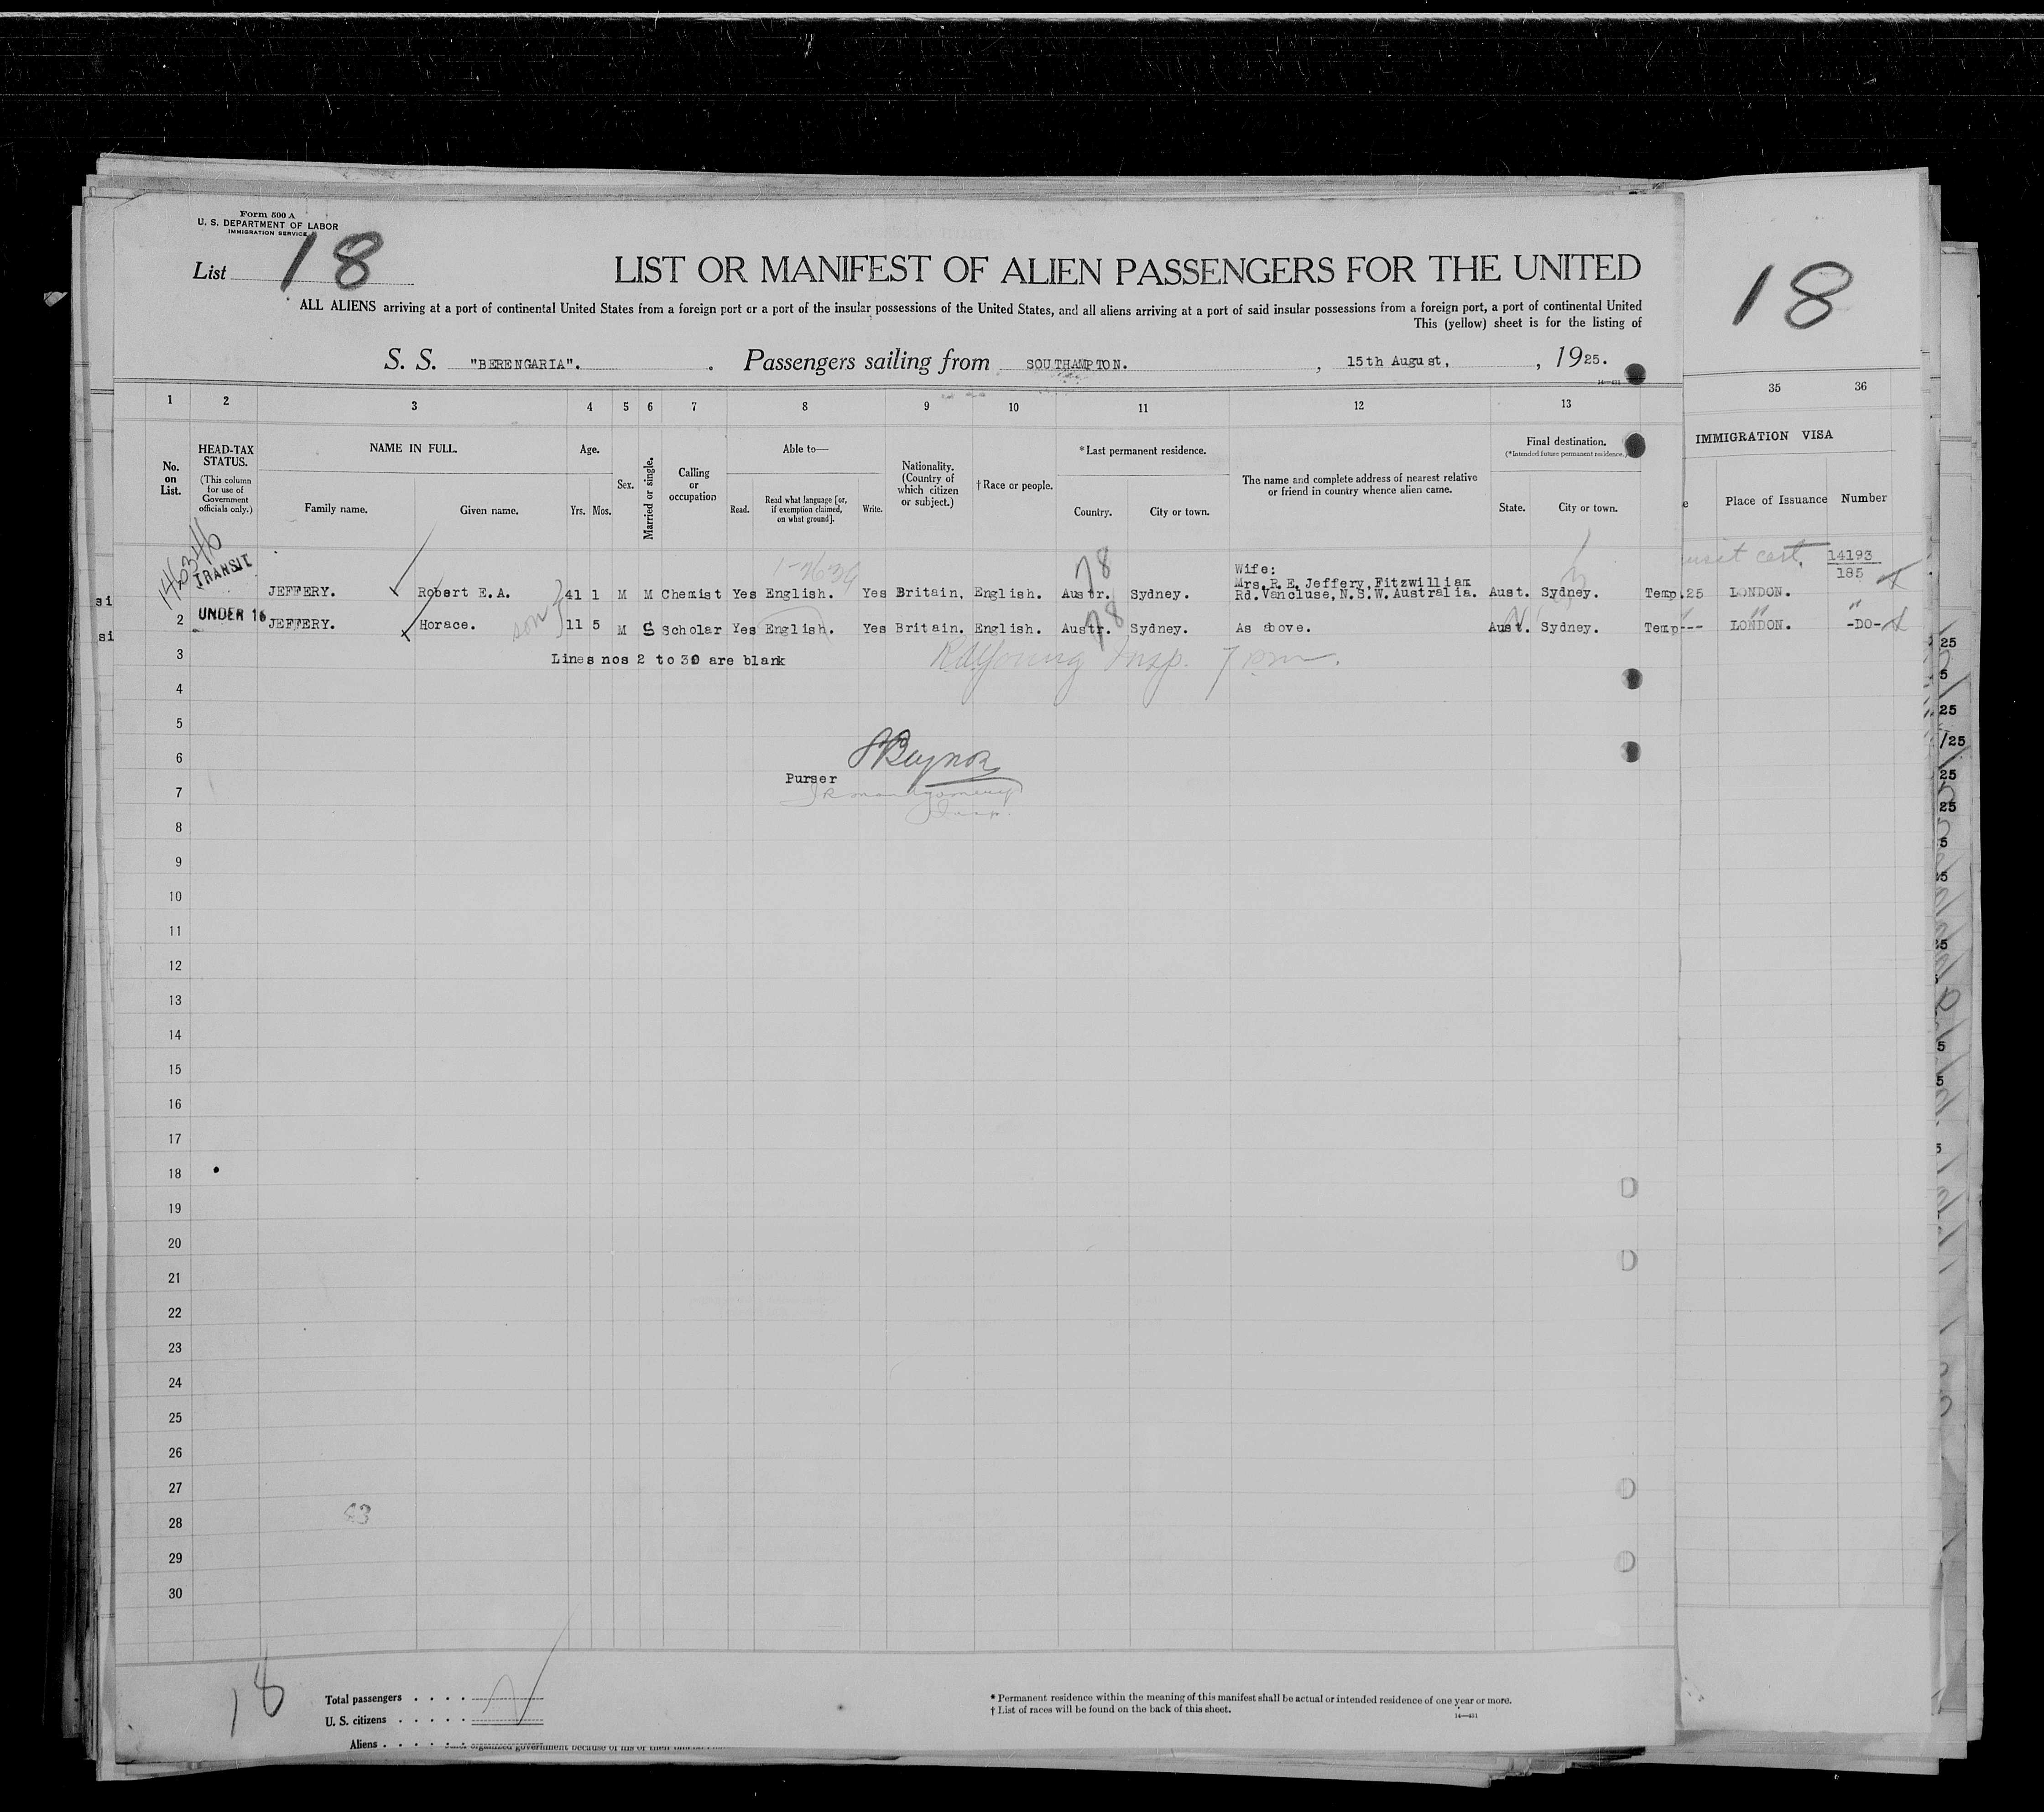 Form 500 A
U. S. DEPARTMENT OF LABOR
IMMIGRATION SERVICE
List 18
LIST OR MANIFEST OF ALIEN PASSENGERS FOR THE UNITED
18
ALL ALIENS arriving at a port of continental United States from a foreign port or a port of the insular possessions of the United States, and all aliens arriving at a port of said insular possessions from a foreign port, a port of continental United
This (yellow) sheet is for the listing of
S. S. "BERENGARIA". Passengers sailing from SOUTHAMPTON. , 15th August, , 1925.
14—431
1 2 3 4 5 6 7 8 9 10 11 12 13 35 36
No. on List.
HEAD-TAX STATUS.
(This column for use of Government officials only.)
NAME IN FULL.
Family name. Given name.
Age.
Yrs. Mos.
Sex.
Married or single.
Calling or occupation
Able to—
Read. Read what language [or, if exemption claimed, on what ground]. Write.
Nationality. (Country of which citizen or subject.)
† Race or people.
* Last permanent residence.
Country. City or town.
The name and complete address of nearest relative or friend in country whence alien came.
Final destination.
(*Intended future permanent residence.)
State. City or town.
IMMIGRATION VISA
e Place of Issuance Number
146346
TRANSIT
JEFFERY. Robert E.A. 41 1 M M Chemist Yes English. Yes Britain, English. Austr. Sydney. Wife: Mrs. R. E. Jeffery, Fitzwilliam Rd. Vancluse, N.S.W. Australia. Aust. Sydney. Temp.25 LONDON. 14193 185
78
si
2 UNDER 16 JEFFERY. Horace. son 11 5 M S Scholar Yes English. Yes Britain. English. Austr. Sydney. As above. Aust. Sydney. Temp--- LONDON. -DO-
78
si
3 Lines nos 2 to 30 are blank
Insp. 7 pm.
4
5
6
Purser
7
Insp.
8
9
10
11
12
13
14
15
16
17
18
19
20
21
22
23
24
25
26
27
28
29
30
43
18
Total passengers . . . .
U. S. citizens . . . . .
Aliens . . . . . .
* Permanent residence within the meaning of this manifest shall be actual or intended residence of one year or more.
† List of races will be found on the back of this sheet.
14—431
25
5
25
/25
25
25
5